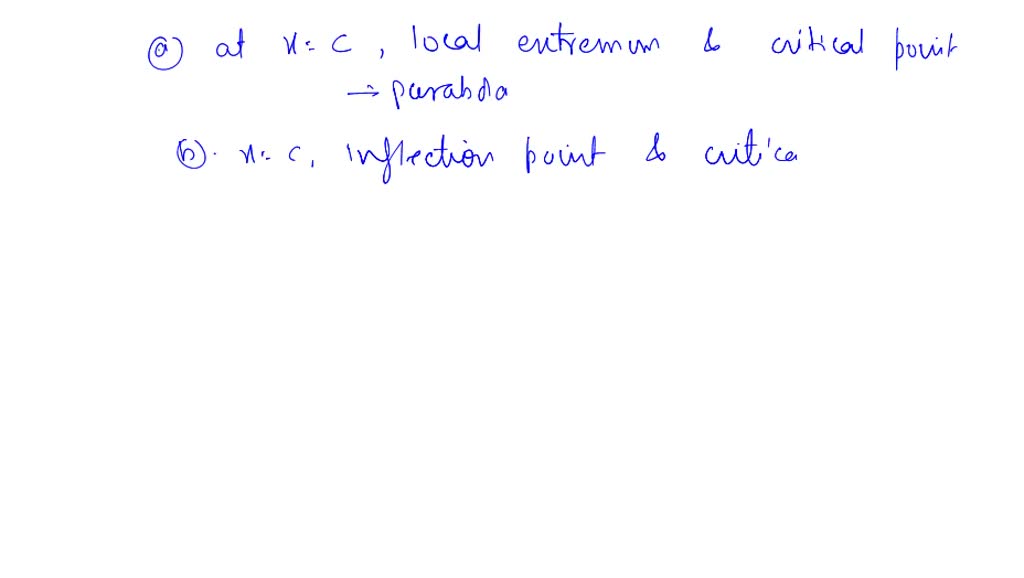 (a) at x = c, local extremum & critical point
→ parabola
(b). x = c, inflection point & critica